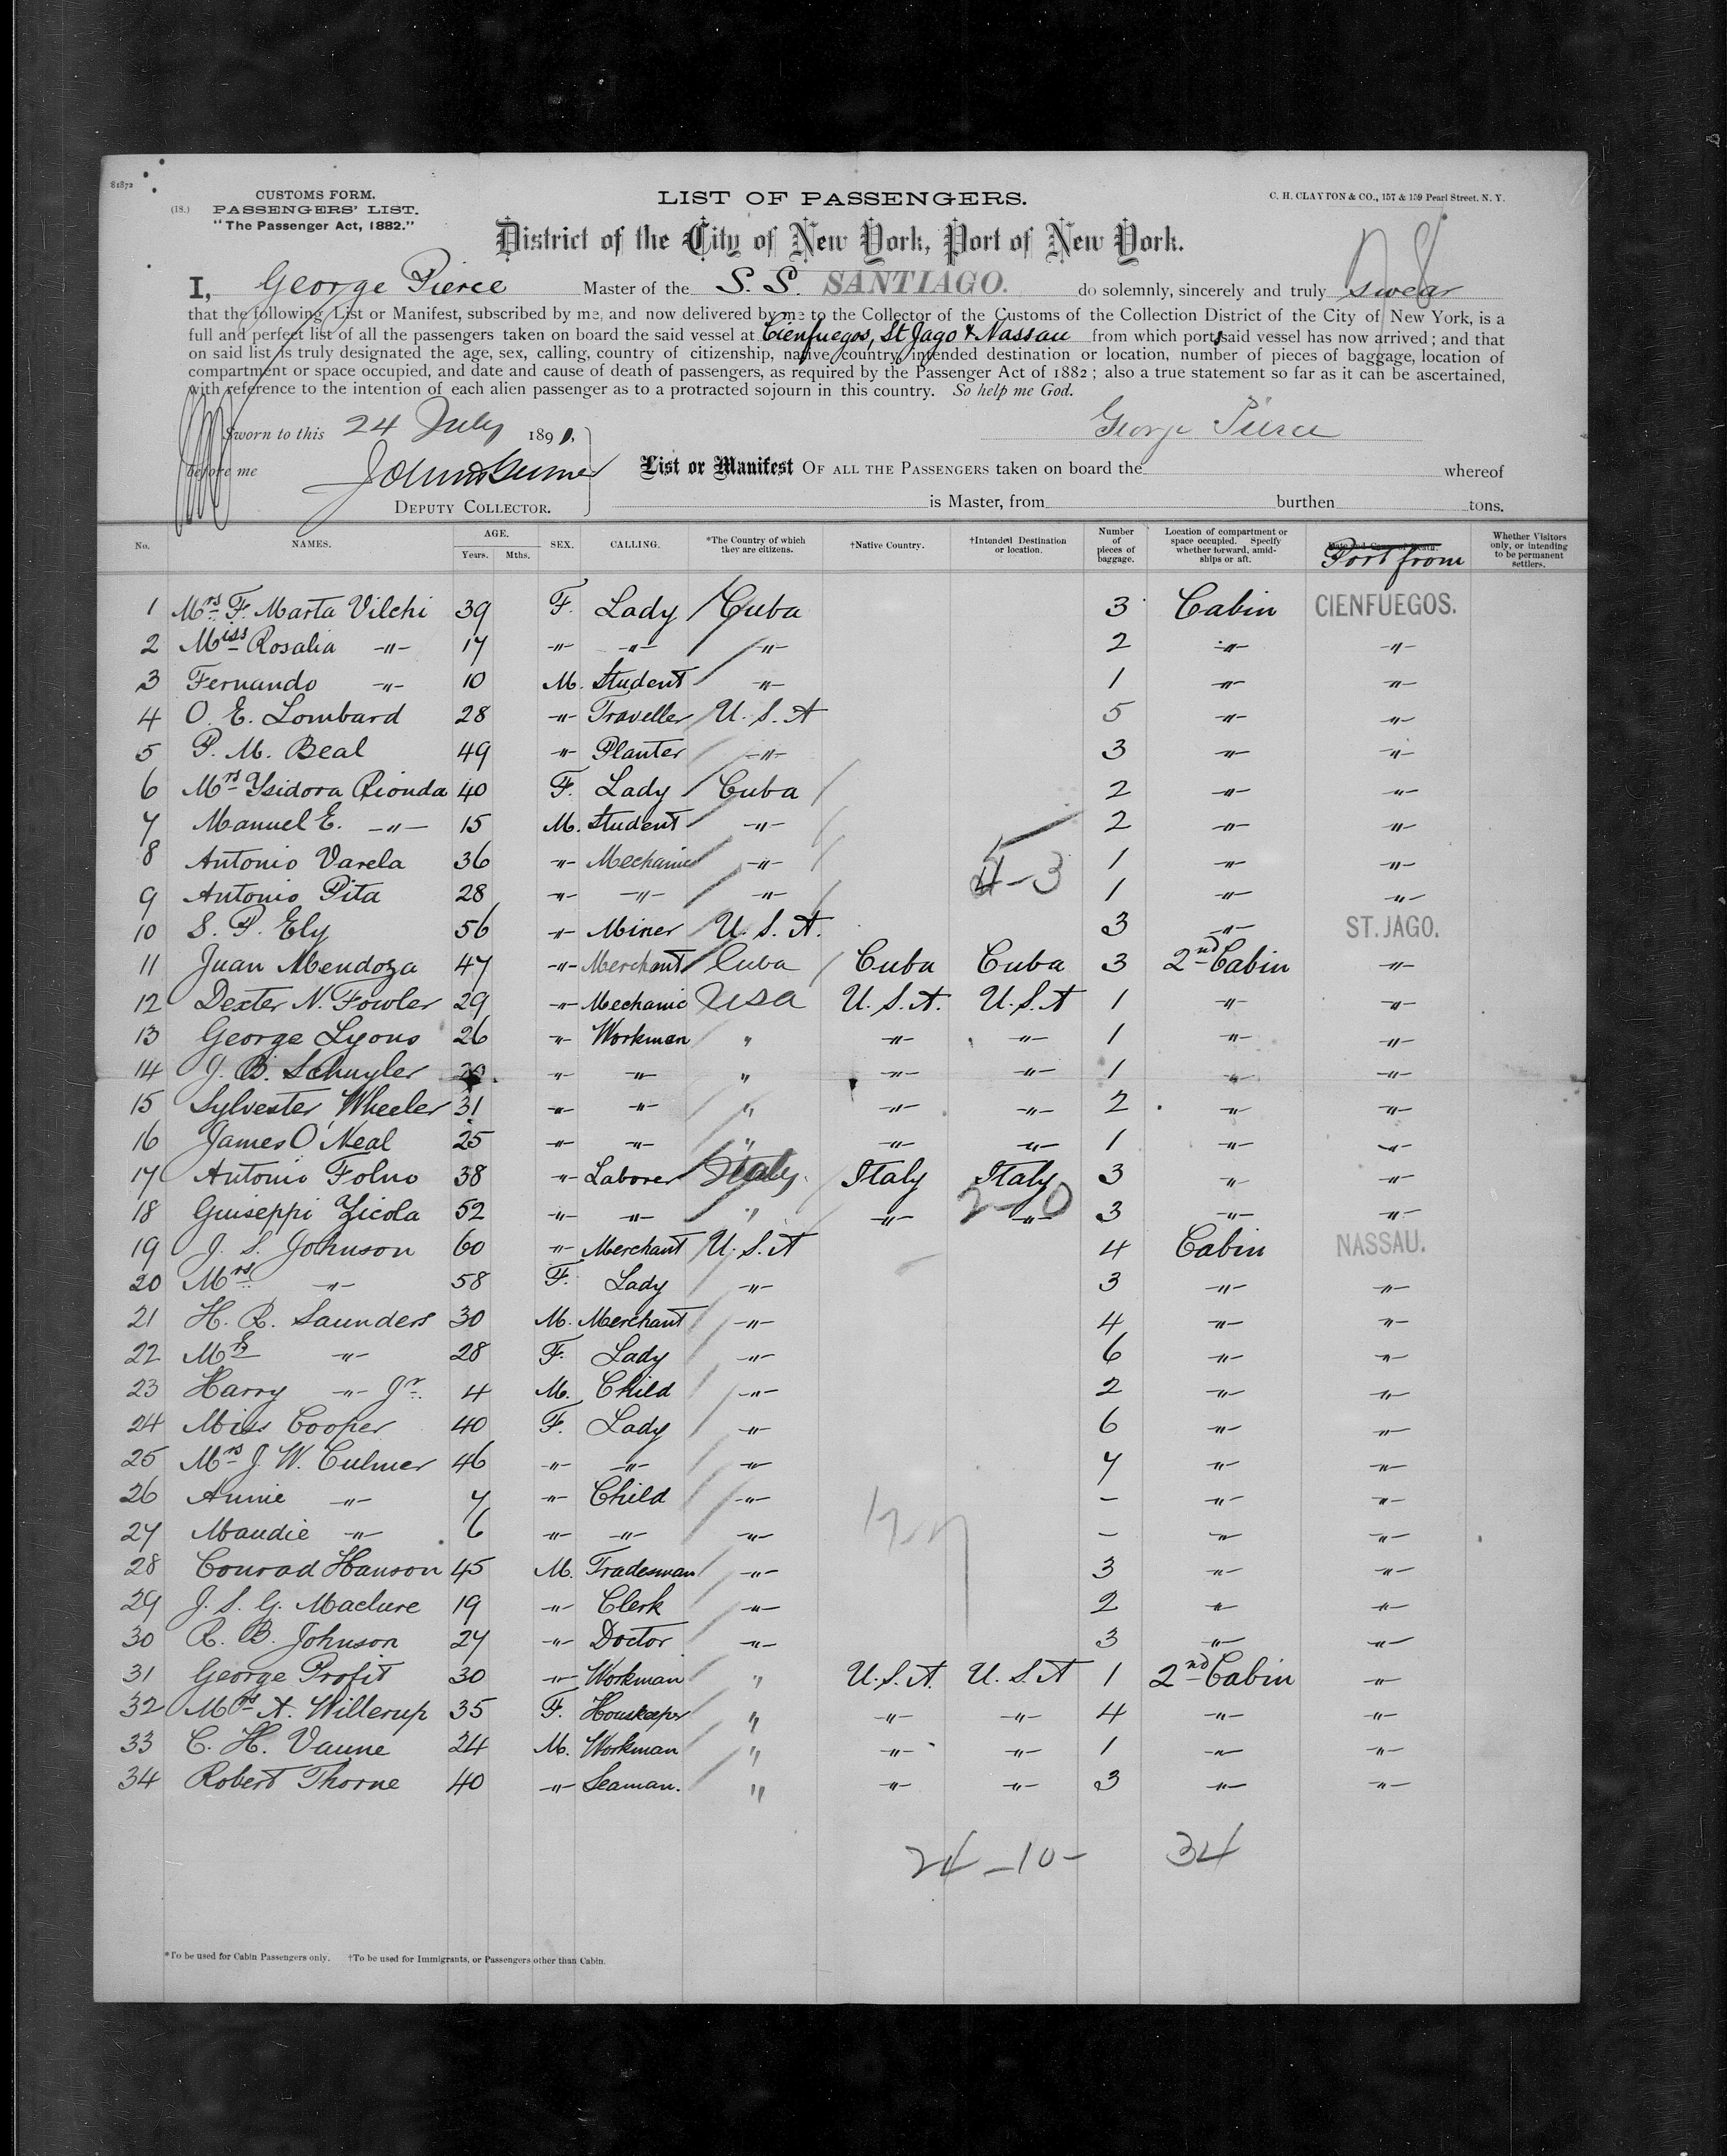 81872
CUSTOMS FORM.
(18.) PASSENGERS' LIST.
"The Passenger Act, 1882."
LIST OF PASSENGERS.
C. H. CLAYTON & CO., 157 & 159 Pearl Street. N. Y.
District of the City of New York, Port of New York.
I, George Pierce Master of the S. S. SANTIAGO. do solemnly, sincerely and truly swear
that the following List or Manifest, subscribed by me, and now delivered by me to the Collector of the Customs of the Collection District of the City of New York, is a
full and perfect list of all the passengers taken on board the said vessel at Cienfuegos, St Jago & Nassau from which ports said vessel has now arrived; and that
on said list is truly designated the age, sex, calling, country of citizenship, native country, intended destination or location, number of pieces of baggage, location of
compartment or space occupied, and date and cause of death of passengers, as required by the Passenger Act of 1882; also a true statement so far as it can be ascertained,
with reference to the intention of each alien passenger as to a protracted sojourn in this country. So help me God.
Sworn to this 24 July 1891,
George Pierce
before me
List or Manifest OF ALL THE PASSENGERS taken on board the whereof
DEPUTY COLLECTOR.
is Master, from burthen tons.
No. NAMES. AGE. Years. Mths. SEX. CALLING. *The Country of which they are citizens. †Native Country. †Intended Destination or location. Number of pieces of baggage. Location of compartment or space occupied. Specify whether forward, amidships or aft. Date and Cause of Death. Port from Whether Visitors only, or intending to be permanent settlers.
1 Mrs F. Marta Vilchi 39 F. Lady Cuba 3 Cabin CIENFUEGOS.
2 Miss Rosalia -"- 17 -"- -"- -"- 2 -"- -"-
3 Fernando -"- 10 M. Student -"- 1 -"- -"-
4 O. E. Lombard 28 -"- Traveller U. S. A 5 -"- -"-
5 P. M. Beal 49 -"- Planter -"- 3 -"- -"-
6 Mrs Ysidora Rionda 40 F. Lady Cuba 2 -"- -"-
7 Manuel E. -"- 15 M. Student -"- 2 -"- -"-
8 Antonio Varela 36 -"- Mechanic -"- 1 -"- -"-
9 Antonio Pita 28 -"- -"- -"- 1 -"- -"-
10 S. P. Ely 56 -"- Miner U. S. A. 3 -"- ST. JAGO.
11 Juan Mendoza 47 -"- Merchant Cuba Cuba Cuba 3 2nd Cabin -"-
12 Dexter N. Fowler 29 -"- Mechanic USA U. S. A. U. S. A 1 -"- -"-
13 George Lyons 26 -"- Workman " -"- -"- 1 -"- -"-
14 J. B. Schuyler -"- -"- " -"- -"- 1 -"- -"-
15 Sylvester Wheeler 31 -"- -"- " -"- -"- 2 -"- -"-
16 James O'Neal 25 -"- -"- " -"- -"- 1 -"- -"-
17 Antonio Folno 38 -"- Laborer Italy Italy Italy 3 " -"-
18 Guiseppi Zicola 52 -"- -"- " -"- -"- 3 -"- -"-
19 J. S. Johnson 60 -"- Merchant U. S. A 4 Cabin NASSAU.
20 Mrs -"- 58 F. Lady -"- 3 -"- -"-
21 H. R. Saunders 30 M. Merchant -"- 4 -"- -"-
22 Mrs -"- 28 F. Lady -"- 6 -"- -"-
23 Harry -"- Jr. 4 M. Child -"- 2 -"- -"-
24 Miss Cooper 40 F. Lady -"- 6 -"- -"-
25 Mrs J. W. Culmer 46 -"- -"- -"- 7 -"- -"-
26 Annie -"- 7 -"- Child -"- - -"- -"-
27 Maudie -"- 6 -"- -"- -"- - -"- -"-
28 Conrad Hanson 45 M. Tradesman -"- 3 -"- -"-
29 J. S. G. Maclure 19 -"- Clerk -"- 2 -"- -"-
30 R. B. Johnson 27 -"- Doctor -"- 3 -"- -"-
31 George Profit 30 -"- Workman " U. S. A. U. S. A 1 2nd Cabin -"-
32 Mrs A. Willerup 35 F. Houskeeper " -"- -"- 4 -"- -"-
33 C. H. Vaune 24 M. Workman " -"- -"- 1 -"- -"-
34 Robert Thorne 40 -"- Seaman. " -"- -"- 3 -"- -"-
24-10- 34
*To be used for Cabin Passengers only. †To be used for Immigrants, or Passengers other than Cabin.